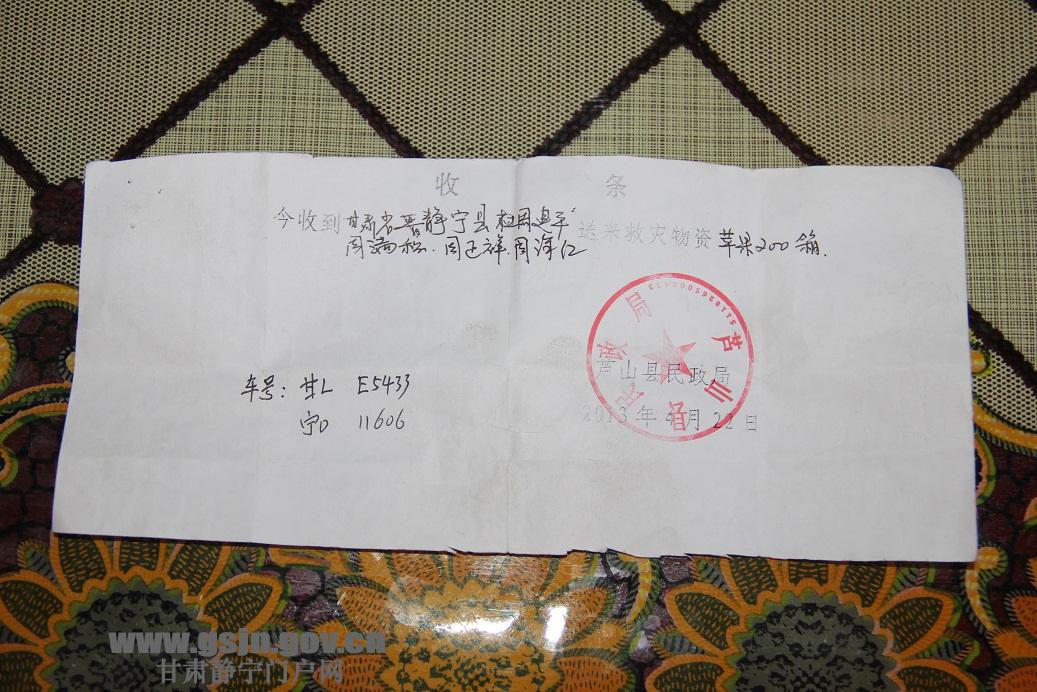 收 条
今收到甘肃省静宁县 送来救灾物资苹果200箱.
周瑞 . 周正祥.周海红
芦山县民政局
芦山县民政局
2013年4月22日
车号: 甘L E5433
宁D 11606
www.gsjn.gov.cn
甘肃静宁门户网